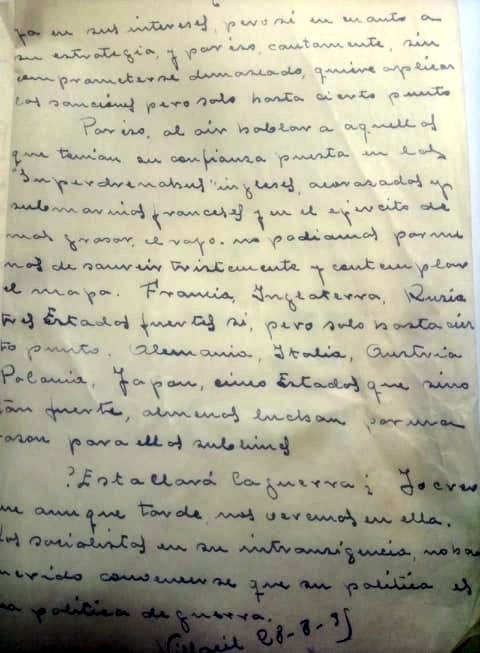 ya en sus intereses, pero sí en cuanto a
su estrategia, y por eso, cautamente, sin
comprometerse demasiado, quiere aplicar
las sanciones pero solo hasta cierto punto
Por eso, al oir hablar a aquellos
que tenian su confianza puesta en los
"Superdrenabus" ingleses, acorazados y
submarinos franceses y en el ejercito de
mas grasor, el rojo. no podiamos por me
nos de sonreir tristemente y contemplar
el mapa. Francia, Inglaterra, Rusia
tres Estados fuertes si, pero solo hasta cier
to punto. Alemania, Italia, Austria
Polonia, Japon, cinco Estados que sino
tan fuerte, almenos luchan por una
rason para ellos sublimes
?Estallará la guerra¿ Yo creo
que aunque tarde, nos veremos en ella.
Los socialistas en su intransigencia, no han
querido convencerse que su politica es
una politica de guerra.
28-8-35